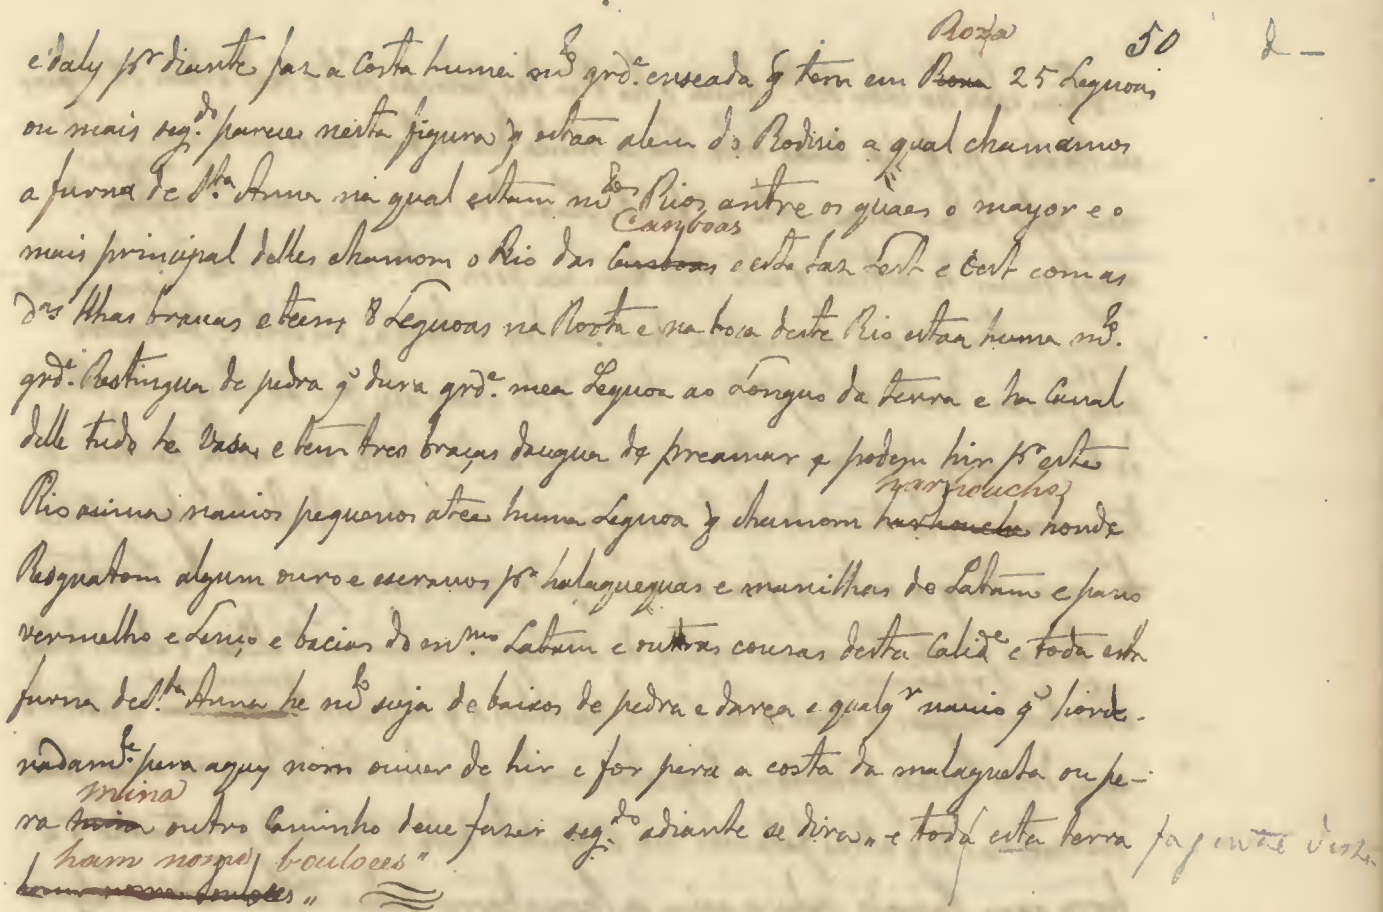 50
Roxa
e daly pr diante faz a Costa huma mto grde enseada q tem em Roxa 25 Leguoas
ou mais segdo parece nesta figura q estaa alem do Rodisio a qual chamamos
a furna de Sta Anna na qual estam mtos Rios antre os quaes o mayor e o
Canboas
mais principal delles chamom o Rio das e este faz Lest e Oest com as
das Ilhas brauas e teem 8 Leguoas na Roota e na boca deste Rio estaa huma mto
grde Restingua de pedra q dura grde mea Leguoa ao Longuo da terra e ha Canal
delle tudo he Vasa, e tem tres braças daugua de preamar e podem hir pr este
Rio acima nauios pequenos atee huma Leguoa q chamom honde
Resguatom algum ouro e escrauos pr halaqueguas e manilhas de Latam e pano
vermelho e Lenço e bacias do mmo Latam e outras cousas desta Calide e toda esta
furna de Sta Anna he mto suja de baixos de pedra e darea e qualqr nauio q horde-
nadamte pera aquy nom ouuer de hir e for pera a costa da malagueta ou pe-
mina
ra outro Caminho deue fazer segdo adiante se dira,, e toda esta terra
ham nome boulooes"